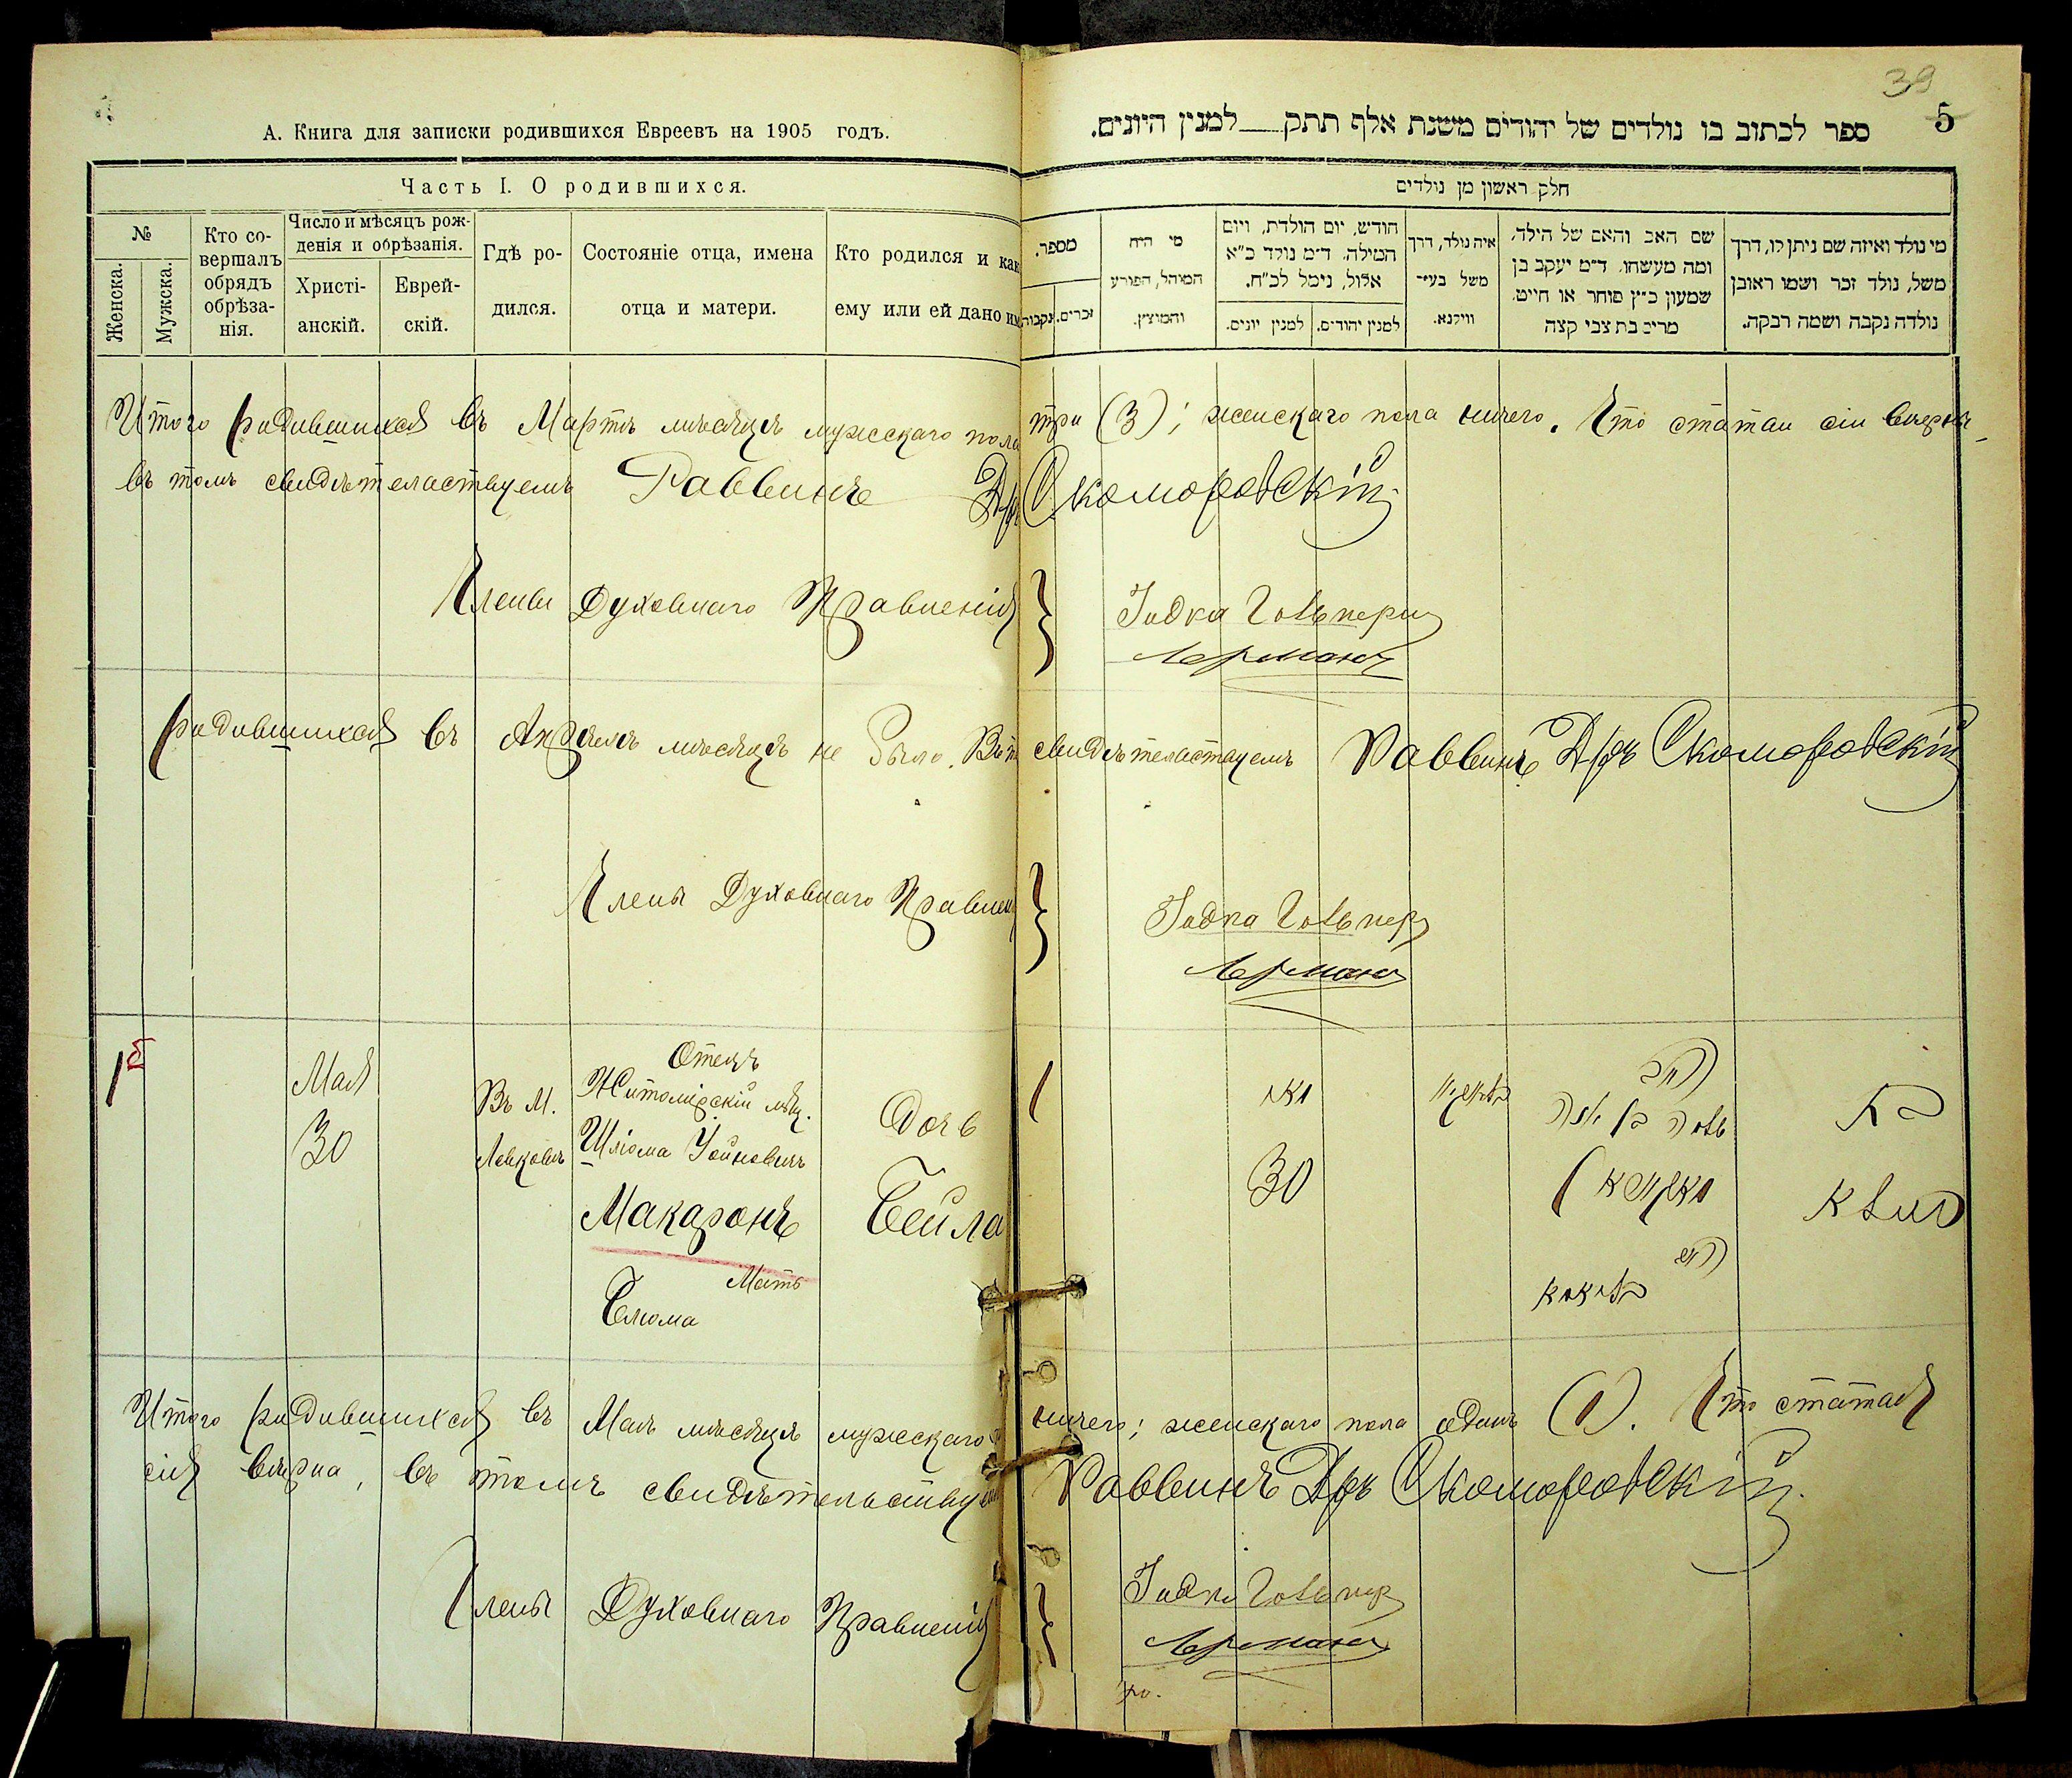 39
5
А. Книга для записки родившихся Евреевъ на 1905 годъ.
ספר לכתוב בו נולדים של יהודים משנת אלף תתק למנין היונים.
Часть I. О родившихся.
חלק ראשון מן נולדים
№
Женска.
Мужска.
Кто со-
вершалъ
обрядъ
обрѣза-
нія.
Число и мѣсяцъ рож-
денія и обрѣзанія.
Христі-
анскій.
Еврей-
скій.
Гдѣ ро-
дился.
Состояніе отца, имена
отца и матери.
Кто родился и как
ему или ей дано им
מספר.
זכרים.
נקבות
מי היה
המוהל, הפורע
והמוצץ.
חודש, יום הולדת, ויום
המילה. ד״מ נולד כ״א
אלול, נימל לכ״ח.
למנין יהודים.
למנין יונים.
איה נולד, דרך
משל בעיר
ווילנא.
שם האב והאם של הילד,
ומה מעשהו. ד״מ יעקב בן
שמעון כ״ץ סוחר או חייט.
מרים בת צבי קצה
מי נולד ואיזה שם ניתן לו, דרך
משל, נולד זכר ושמו ראובן
נולדה נקבה ושמה רבקה.
Итого родившихся въ Мартѣ мѣсяцѣ мужскаго пола три (3); женскаго пола ничего. Что статьи сіи вѣрны
въ томъ свидѣтельствуемъ Раввинъ Д-ръ Скоморовскій
Члены Духовнаго Правленія } Іодка Гольперн
Лерманъ
Родившихся въ Апрѣлѣ мѣсяцѣ не было. Въ т свидѣтельствуемъ Раввинъ Д-ръ Скоморовскій
Члены Духовнаго Правлен } Іодка Гольпер
Лерманъ
1 б
Мая
30
Въ м.
Отецъ
Житомірскій мѣщ.
Шліома Хоиновичъ
Макаронъ
Мать
Блюма
Дочь
Бейла
1
מאי
30
האב
מאקאראן
האם
בת
ביילא
Итого родившихся въ Маѣ мѣсяцѣ мужскаго ничего; женскаго пола одинъ (1). Что статья
сія вѣрна, въ томъ свидѣтельствуемъ Раввинъ Д-ръ Скоморовскій
Члены Духовнаго Правленія } Іодка Гольпер
Лерманъ